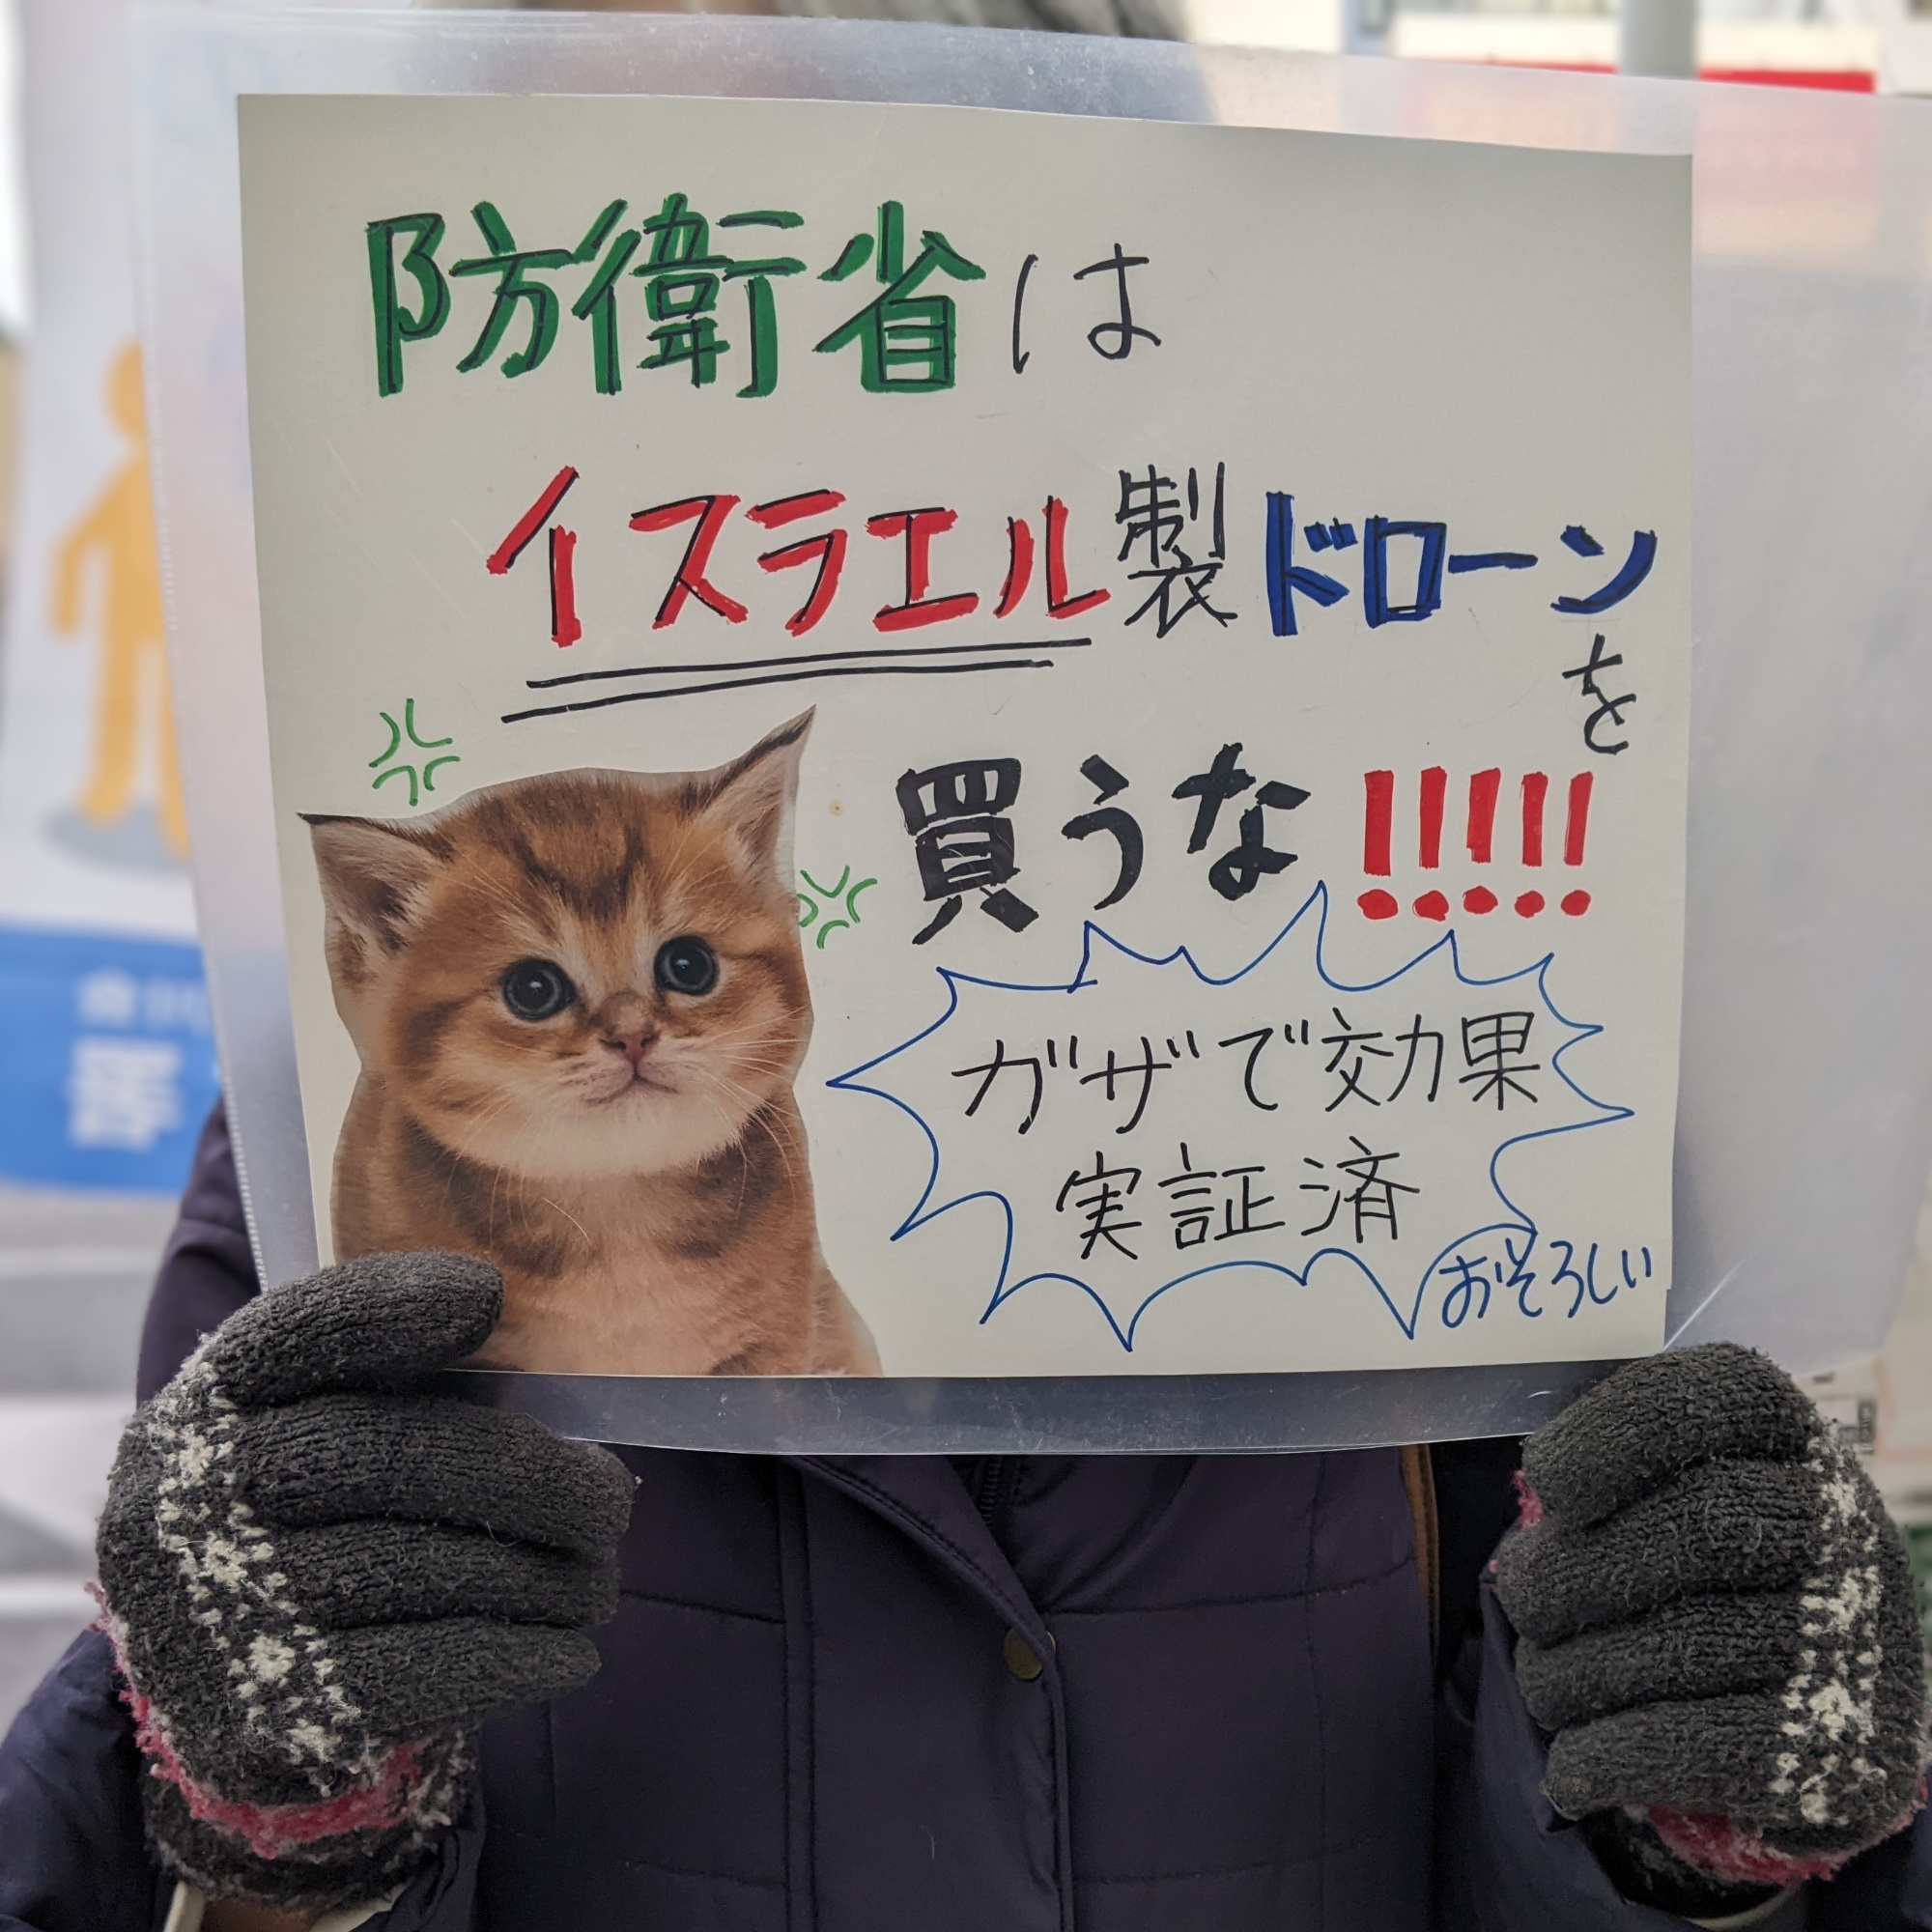 防衛省は
イスラエル製ドローン
を
買うな!!!!!
ガザで効果
実証済
おそろしい